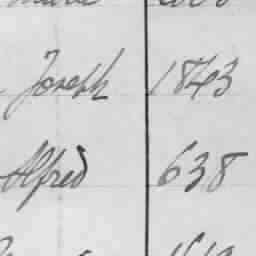 Joseph 1843
Alfred 638